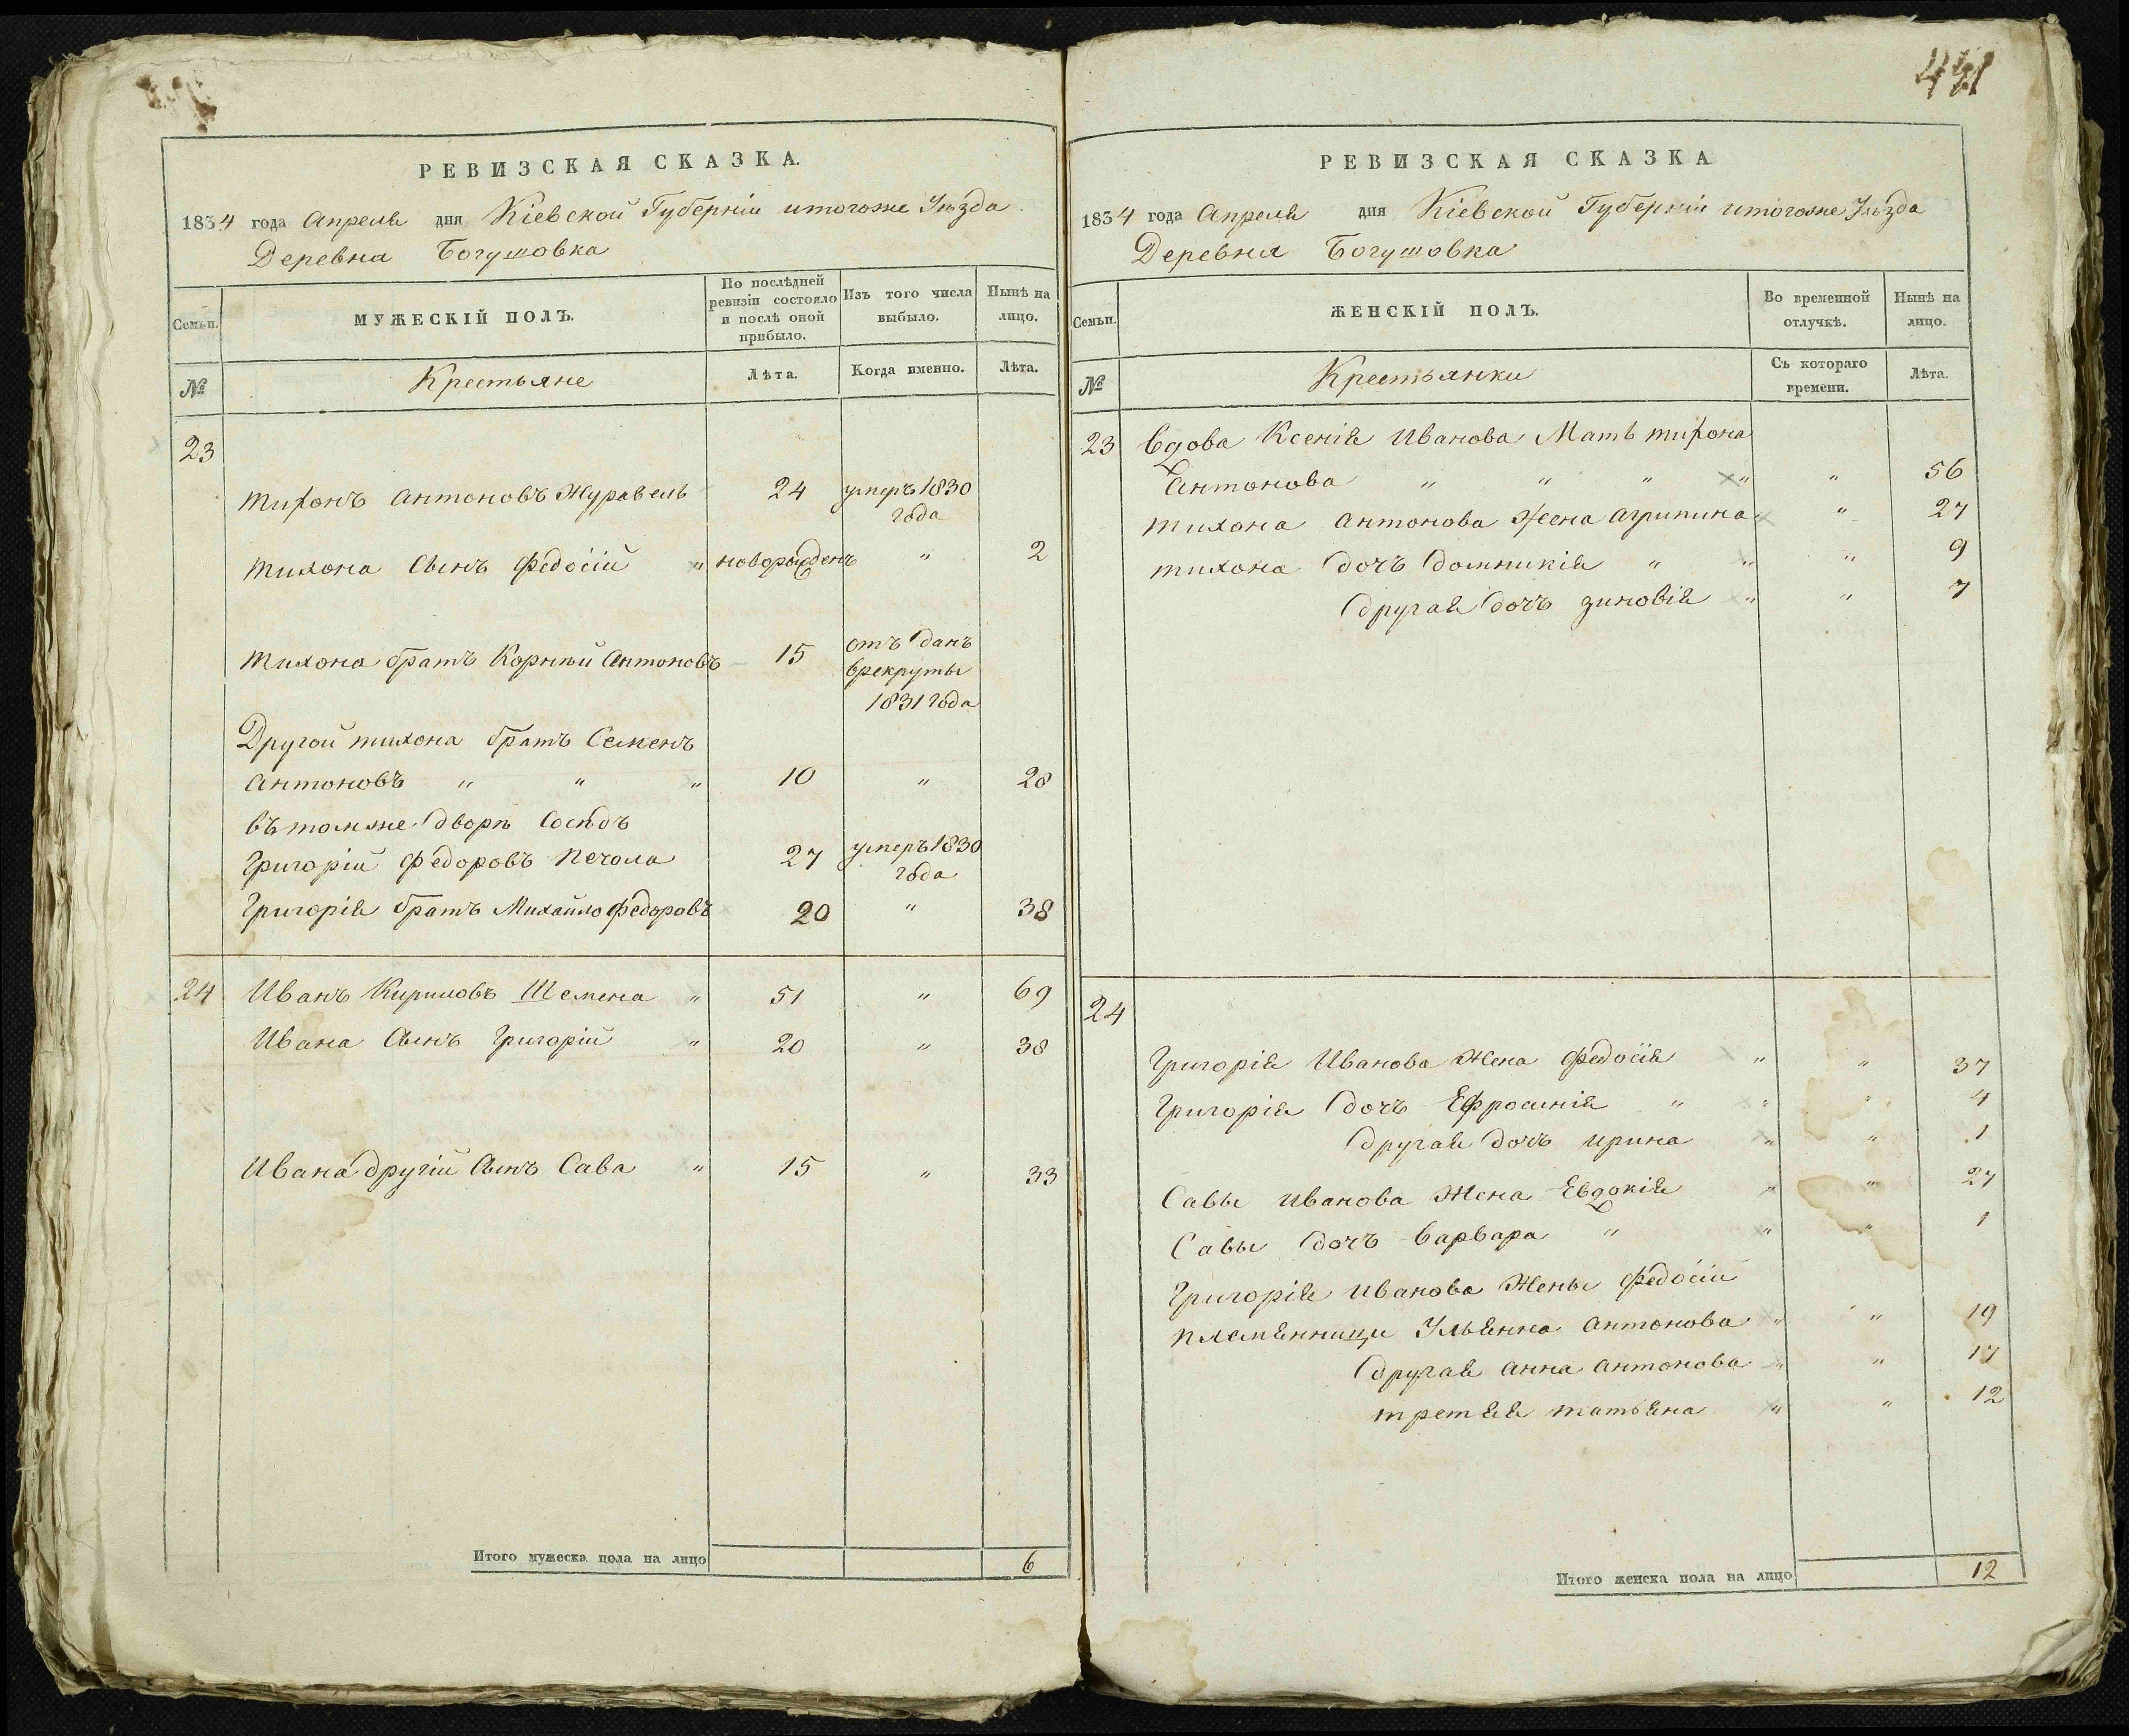 РЕВИЗСКАЯ СКАЗКА.
1834 года Апреля дня Кіевской Губерніи итогоже Уѣзда
Деревна Богушовка
Семьи.
МУЖЕСКІЙ ПОЛЪ.
По послѣдней ревизіи состояло и послѣ оной прибыло.
Изъ того числа выбыло.
Нынѣ на лицо.
№
Крестьяне
Лѣта.
Когда именно.
Лѣта.
23
Тихонъ Антоновъ Журавель 24 умеръ 1830
года
Тихона Сынъ Федосій " новорожденъ " 2
Тихона братъ Корнѣй Антоновъ 15 отъ данъ
врекруты
1831 года
Другой тихона братъ Семенъ
Антоновъ " " " 10 " 28
Въ томже дворѣ Сосѣдъ
Григорій Федоровъ Печола 27 умеръ 1830
года
Григорія братъ Михайло Федоровъ 20 " 38
24 Иванъ Кириловъ Шемена " 51 " 69
Ивана Сынъ Григорій " 20 " 38
Ивана другій Сынъ Сава " 15 " 33
Итого мужеска пола на лицо 6
441
РЕВИЗСКАЯ СКАЗКА
1834 года Апреля дня Кіевской Губерніи итогоже Уѣзда
Деревня Богушовка
Семьи.
ЖЕНСКІЙ ПОЛЪ.
Во временной отлучкѣ.
Нынѣ на лицо.
№
Крестьянки
Съ котораго времени.
Лѣта.
23 Вдова Ксенія Иванова Мать тихона
Антонова " " " " " 56
Тихона Антонова Жена Агрипина " 27
Тихона дочъ Домникія " " " 9
другая дочъ зиновія " " 7
24
Григорія Иванова Жена Федосія " " 37
Григорія дочъ Ефросинія " " " 4
другая дочъ ирина " " 1
Савы Иванова Жена Евдокія " " 27
Савы дочъ Варвара " " " 1
Григорія Иванова Жены Федосіи
племянници Ульянна Антонова " " 19
другая Анна Антонова " " 17
третяя татьяна " " 12
Итого женска пола на лицо 12